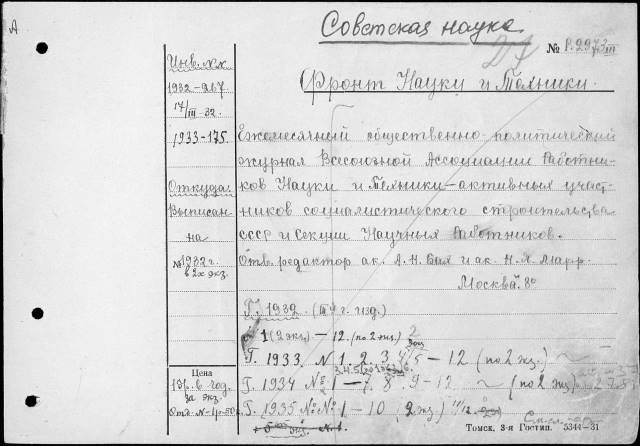 А
Советская наука
№ Р.2973 III
Фронт Науки и Техники.
Инв. хх.
1932-267
17/III-32.
1933-175.
Откуда:
Выписан
на
№ 1932 г.
в 2х экз.
Ежемесячный общественно-политический
журнал Всесоюзной Ассоциации Работни-
ков Науки и Техники-активных участ-
ников социалистического строительства
СССР и Секции Научных Работников.
Отв. редактор ак. А.Н. Бах и ак. Н.Я. Марр.
Москва. 8º
Г. 1932. (II й г. изд.)
1 (2 экз) - 12. (по 2 экз.)
Г. 1933. N 1. 2. 3, 4/5 - 12 (по 2 экз.)
Г. 1934 №№ 1 - 7, 8, 9-12 (по 2 экз)
Г. 1935 №№ 1 - 10 (2 экз) 11/12
Цена
в год.
за экз.
Томск. 3-я Гостип. 5344-31